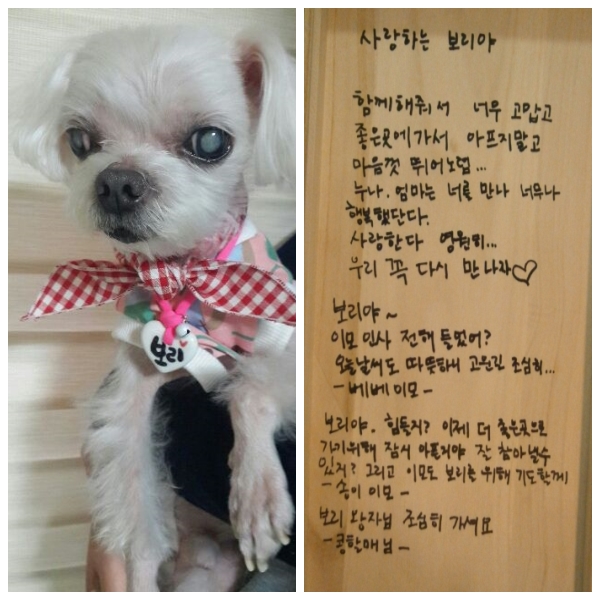 보리
사랑하는 보리야
함께해줘서 너무 고맙고
좋은곳에가서 아프지말고
마음껏 뛰어노렴...
누나. 엄마는 너를 만나 너무나
행복했단다.
사랑한다 영원히...
우리 꼭 다시 만나자♡
보리야~
이모 인사 전해 들었어?
오늘날씨도 따뜻하니 조심히...
-베베이모-
보리야. 힘들지? 이제 더 좋은곳으로
가기위해 잠시 아플지야 잘 참아낼수
있지? 그리고 이모도 보리를 위해 기도할게
-송이 이모-
보리 왕자님 조심히 가세요
-콩할매님-